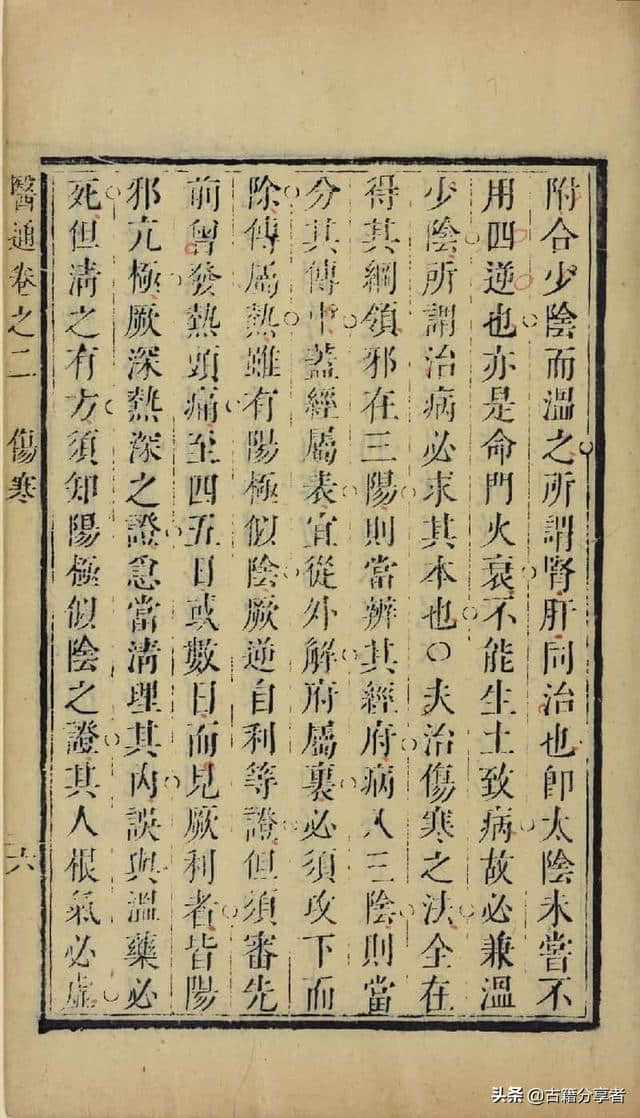 附合少陰而溫之所謂腎肝同治也卽太陰未嘗不
用四逆也亦是命門火衰不能生土致病故必兼溫
少陰所謂治病必求其本也○夫治傷寒之法全在
得其綱領邪在三陽則當辨其經府病入三陰則當
分其傳中蓋經屬表宜從外解府屬裏必須攻下而
除傳屬熱雖有陽極似陰厥逆自利等證但須審先
前曾發熱頭痛至四五日或數日而見厥利者皆陽
邪亢極厥深熱深之證急當清理其內誤與溫藥必
死但清之有方須知陽極似陰之證其人根氣必虛
醫通卷之二 傷寒 六
头条 @古籍分享者